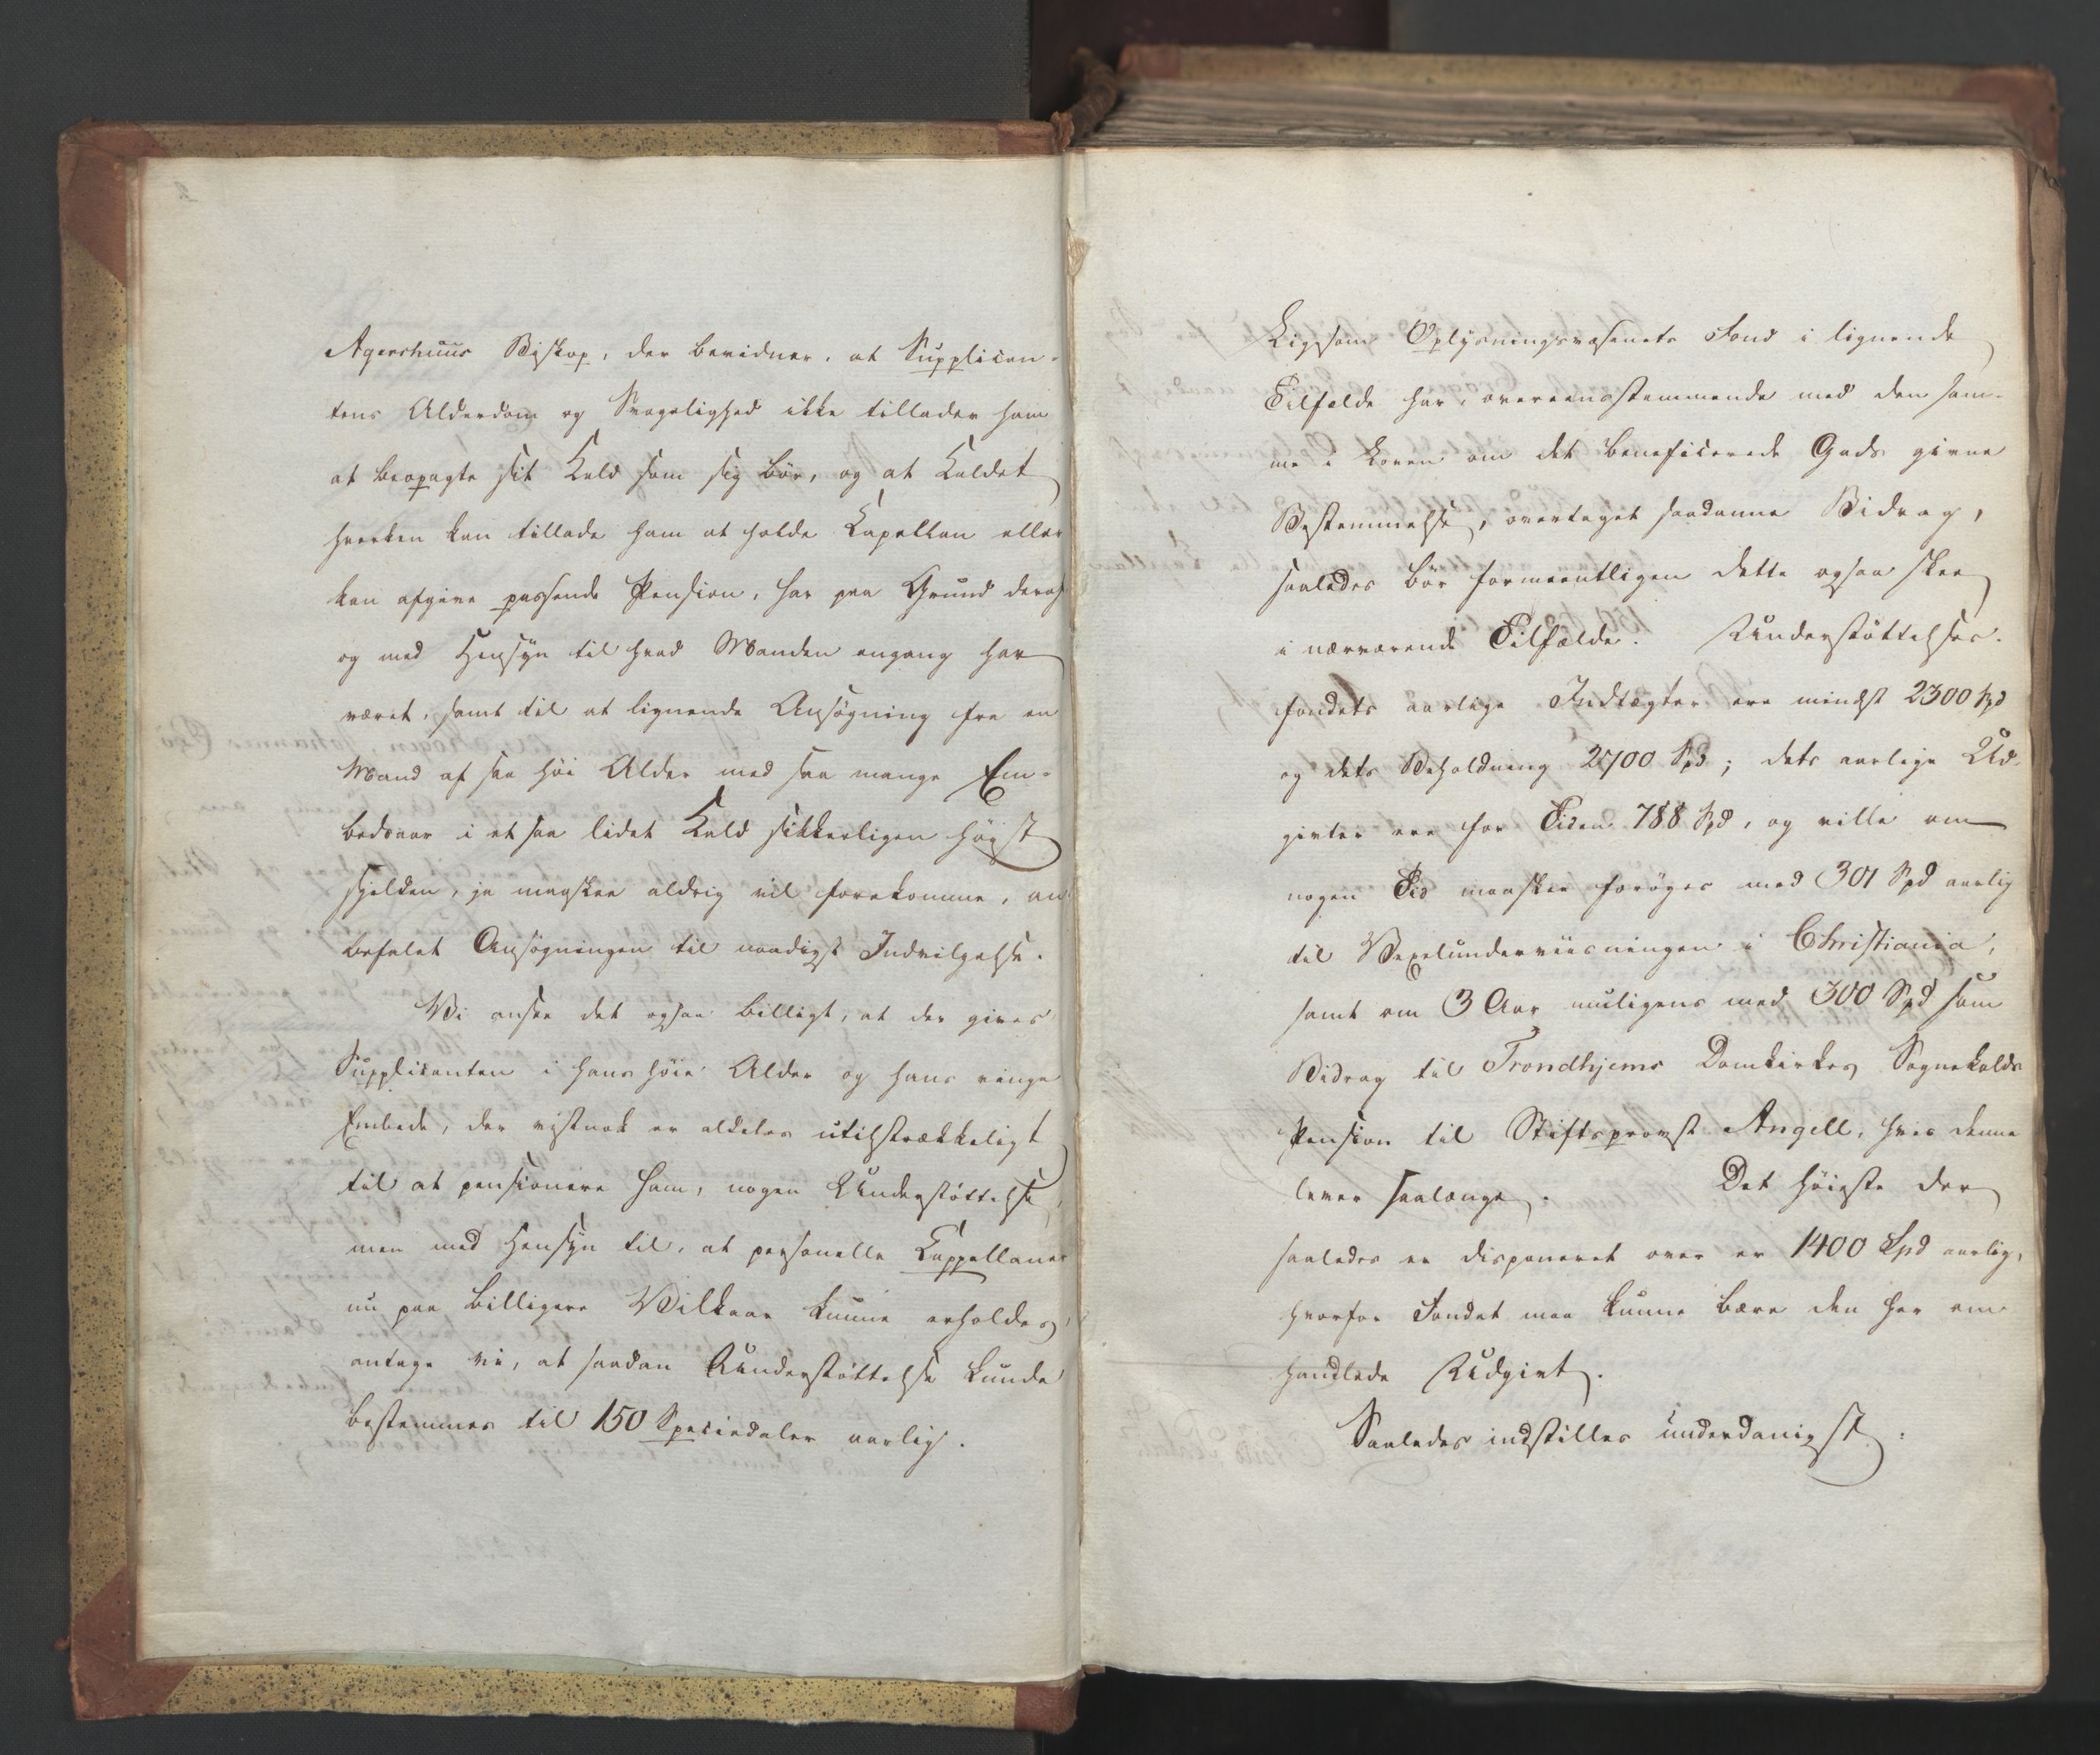 Agershuus Biskop, der bevidner, at Supplican-
tens Alderdom og Svagelighed ikke tillader ham
at beopagte sit Kald som sig bör, og at Kaldet
hverken kan tillade ham at holde Kapellan eller
kan afgive passende Pension, har paa Grund deraf
og med Hensyn til hvad Manden engang har
været, samt til at lignende Ansögning fra en
Mand af saa höi Alder med saa mange Em-
bedsaar i et saa lidet Kald sikkerligen högst
sjelden, ja maaskee aldrig vil forekomme, an-
befalet Ansögningen til naadigst Indvilgelse.
Vi ansee det ogsaa billigt, at der gives
Supplicanten i hans höie Alder og hans ringe
Embede, der vistnok er aldeles utilstrækkeligt
til at pensionere ham, nogen Understöttelse,
men med Hensyn til, at personelle Cappellaner
nu paa billigere Vilkaar kunne erholdes,
antage vi, at saadan Understöttelse kunde
bestemmes til 150 Speciedaler aarlig.
Ligesom Oplysningsvæsenets Fond i lignende
Tilfælde har, overeensstemmende med den sam-
me i Loven om det beneficerede Gods givne
Bestemmelse, overtaget saadanne Bidrag,
saaledes bör formeentligen dette ogsaa skee
i nærværende Tilfælde. Understöttelses-
fondets aarlige Indtægter ere mindst 2300 Spd
og dets Beholdning 2700 Spd; dets aarlige Ud-
givter ere for Tiden 788 Spd, og ville om
nogen Tid maaskee foröges med 301 Spd aarlig
til Vexelunderviisningen i Christiania,
samt om 3 Aar muligens med 300 Spd som
Bidrag til Trondhjems Domkirkes Sognekalds
Pension til Stiftsprovst Angell, hvis denne
lever saalænge. Det höieste der
saaledes er disponeret over er 1400 Spd aarlig,
hvorfor Fondet maa kunne bære den her om-
handlede Udgivt.
Saaledes indstilles underdanigst: